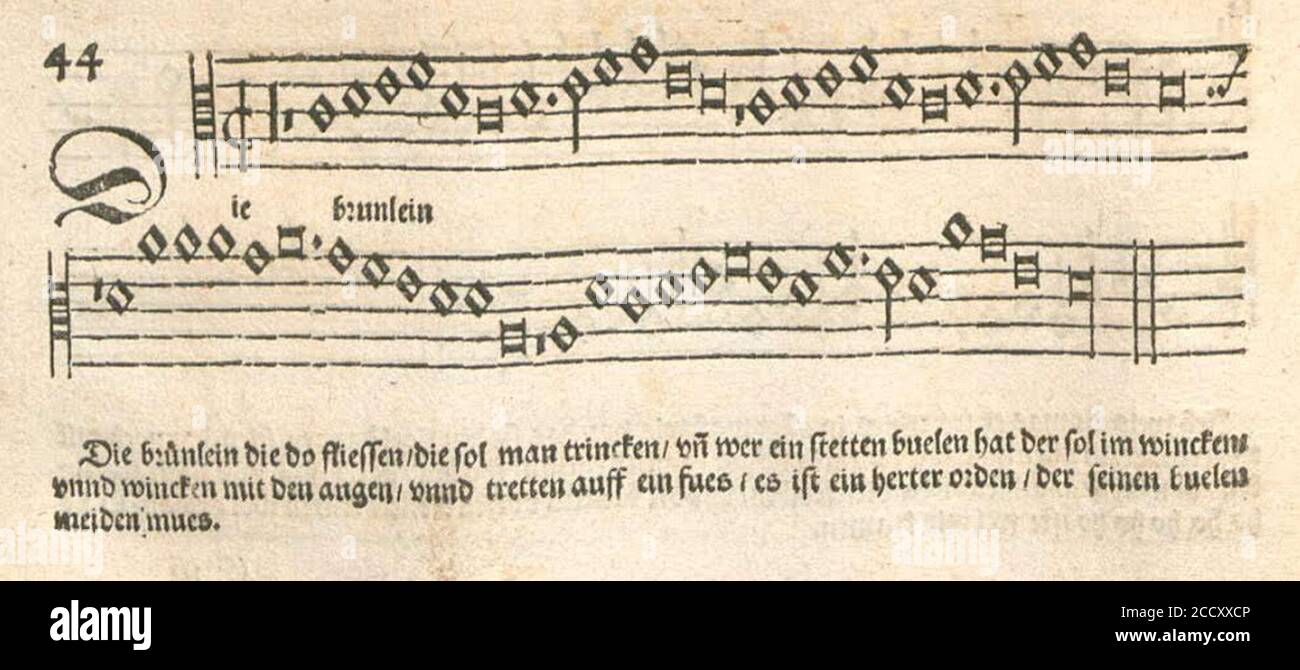 44
Die brunlein
Die brünlein die do fliessen/die sol man trincken/ vñ wer ein stetten buelen hat der sol im wincken/
vnnd wincken mit den augen/ vnnd tretten auff ein fues / es ist ein herter orden / der seinen buelen
meiden mues.
alamy
alamy
alamy
alamy
alamy
alamy
alamy
Image ID: 2CCXXCP
www.alamy.com